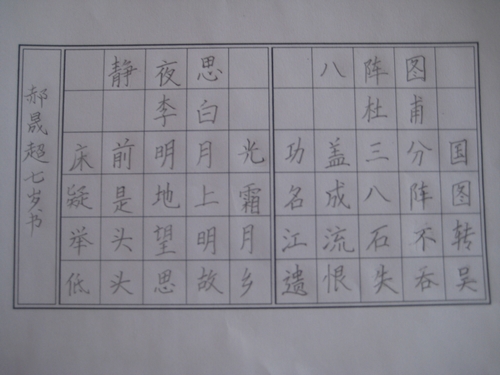 静夜思
李白
床前明月光
疑是地上霜
举头望明月
低头思故乡
八阵图
杜甫
功盖三分国
名成八阵图
江流石不转
遗恨失吞吴
郝晟超七岁书